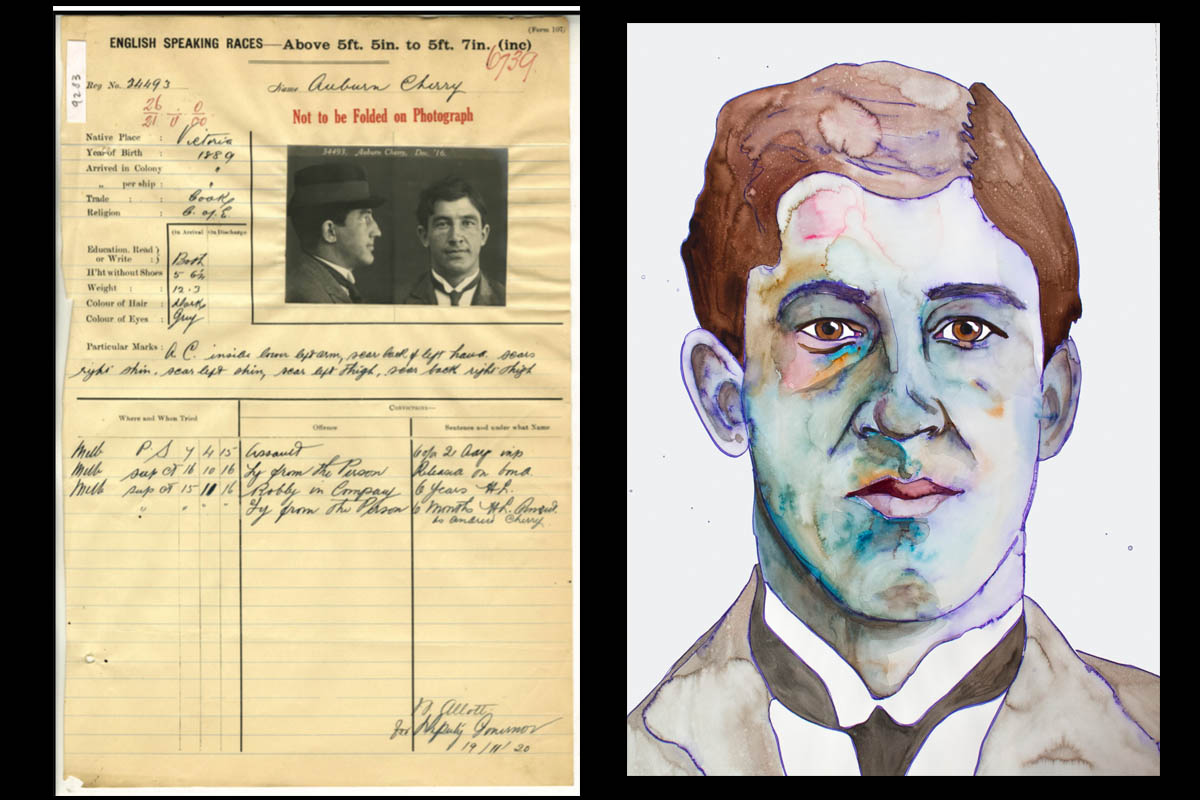 (Form 107)
ENGLISH SPEAKING RACES—Above 5ft. 5in. to 5ft. 7in. (inc)
6739
9283
Reg No. 34493
Name Auburn Cherry
26 . 0
21 U 00
Not to be Folded on Photograph
Native Place : Victoria
Year of Birth : 1889
Arrived in Colony "
" per ship : "
Trade : : Cook
Religion : C. of E.
On Arrival On Discharge
Education. Read } or Write : } Both
H'ht without Shoes 5 6½
Weight : 12.3
Colour of Hair : dark
Colour of Eyes : Grey
34493. Auburn Cherry, Dec. '16.
Particular Marks : A. C. inside lower left arm, scar back of left hand. scars
right shin. scar left shin, scar left thigh, scar back right thigh
CONVICTIONS—
Where and When Tried Offence Sentence and under what Name
Melb P. S 7 4 15 Assault imp
Melb sup Ct 16 10 16 Ly from the Person Release on bond
Melb sup Ct 15 11 16 Robby in Company 6 Years H.L.
" " " " Ly from the Person 6 Months H.L.
as Andrew Cherry
Allott
for Deputy Governor
19/11/20